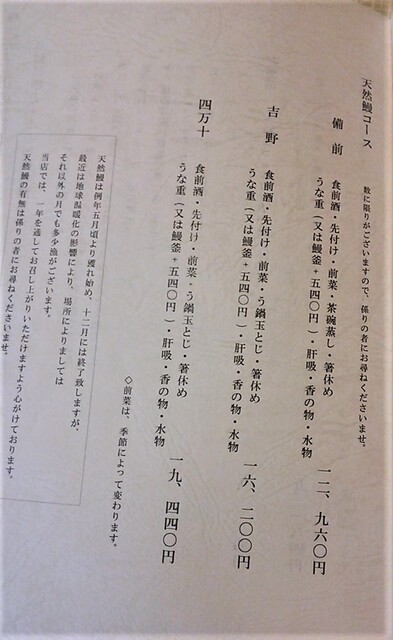 天然鰻コース
数に限りがございますので、係りの者にお尋ねくださいませ。
備前
食前酒・先付け・前菜・茶碗蒸し・箸休め
うな重（又は鰻釜＋五四〇円）・肝吸・香の物・水物
一二、九六〇円
吉野
食前酒・先付け・前菜・う鍋玉とじ・箸休め
うな重（又は鰻釜＋五四〇円）・肝吸・香の物・水物
一六、二〇〇円
四万十
食前酒・先付け・前菜・う鍋玉とじ・箸休め
うな重（又は鰻釜＋五四〇円）・肝吸・香の物・水物
一九、四四〇円
◇前菜は、季節によって変わります。
天然鰻は例年五月頃より獲れ始め、十二月には終了致しますが、
最近は地球温暖化の影響により、場所によりましては
それ以外の月でも多少漁がございます。
当店では、一年を通してお召し上がりいただけますよう心がけております。
天然鰻の有無は係りの者にお尋ねくださいませ。